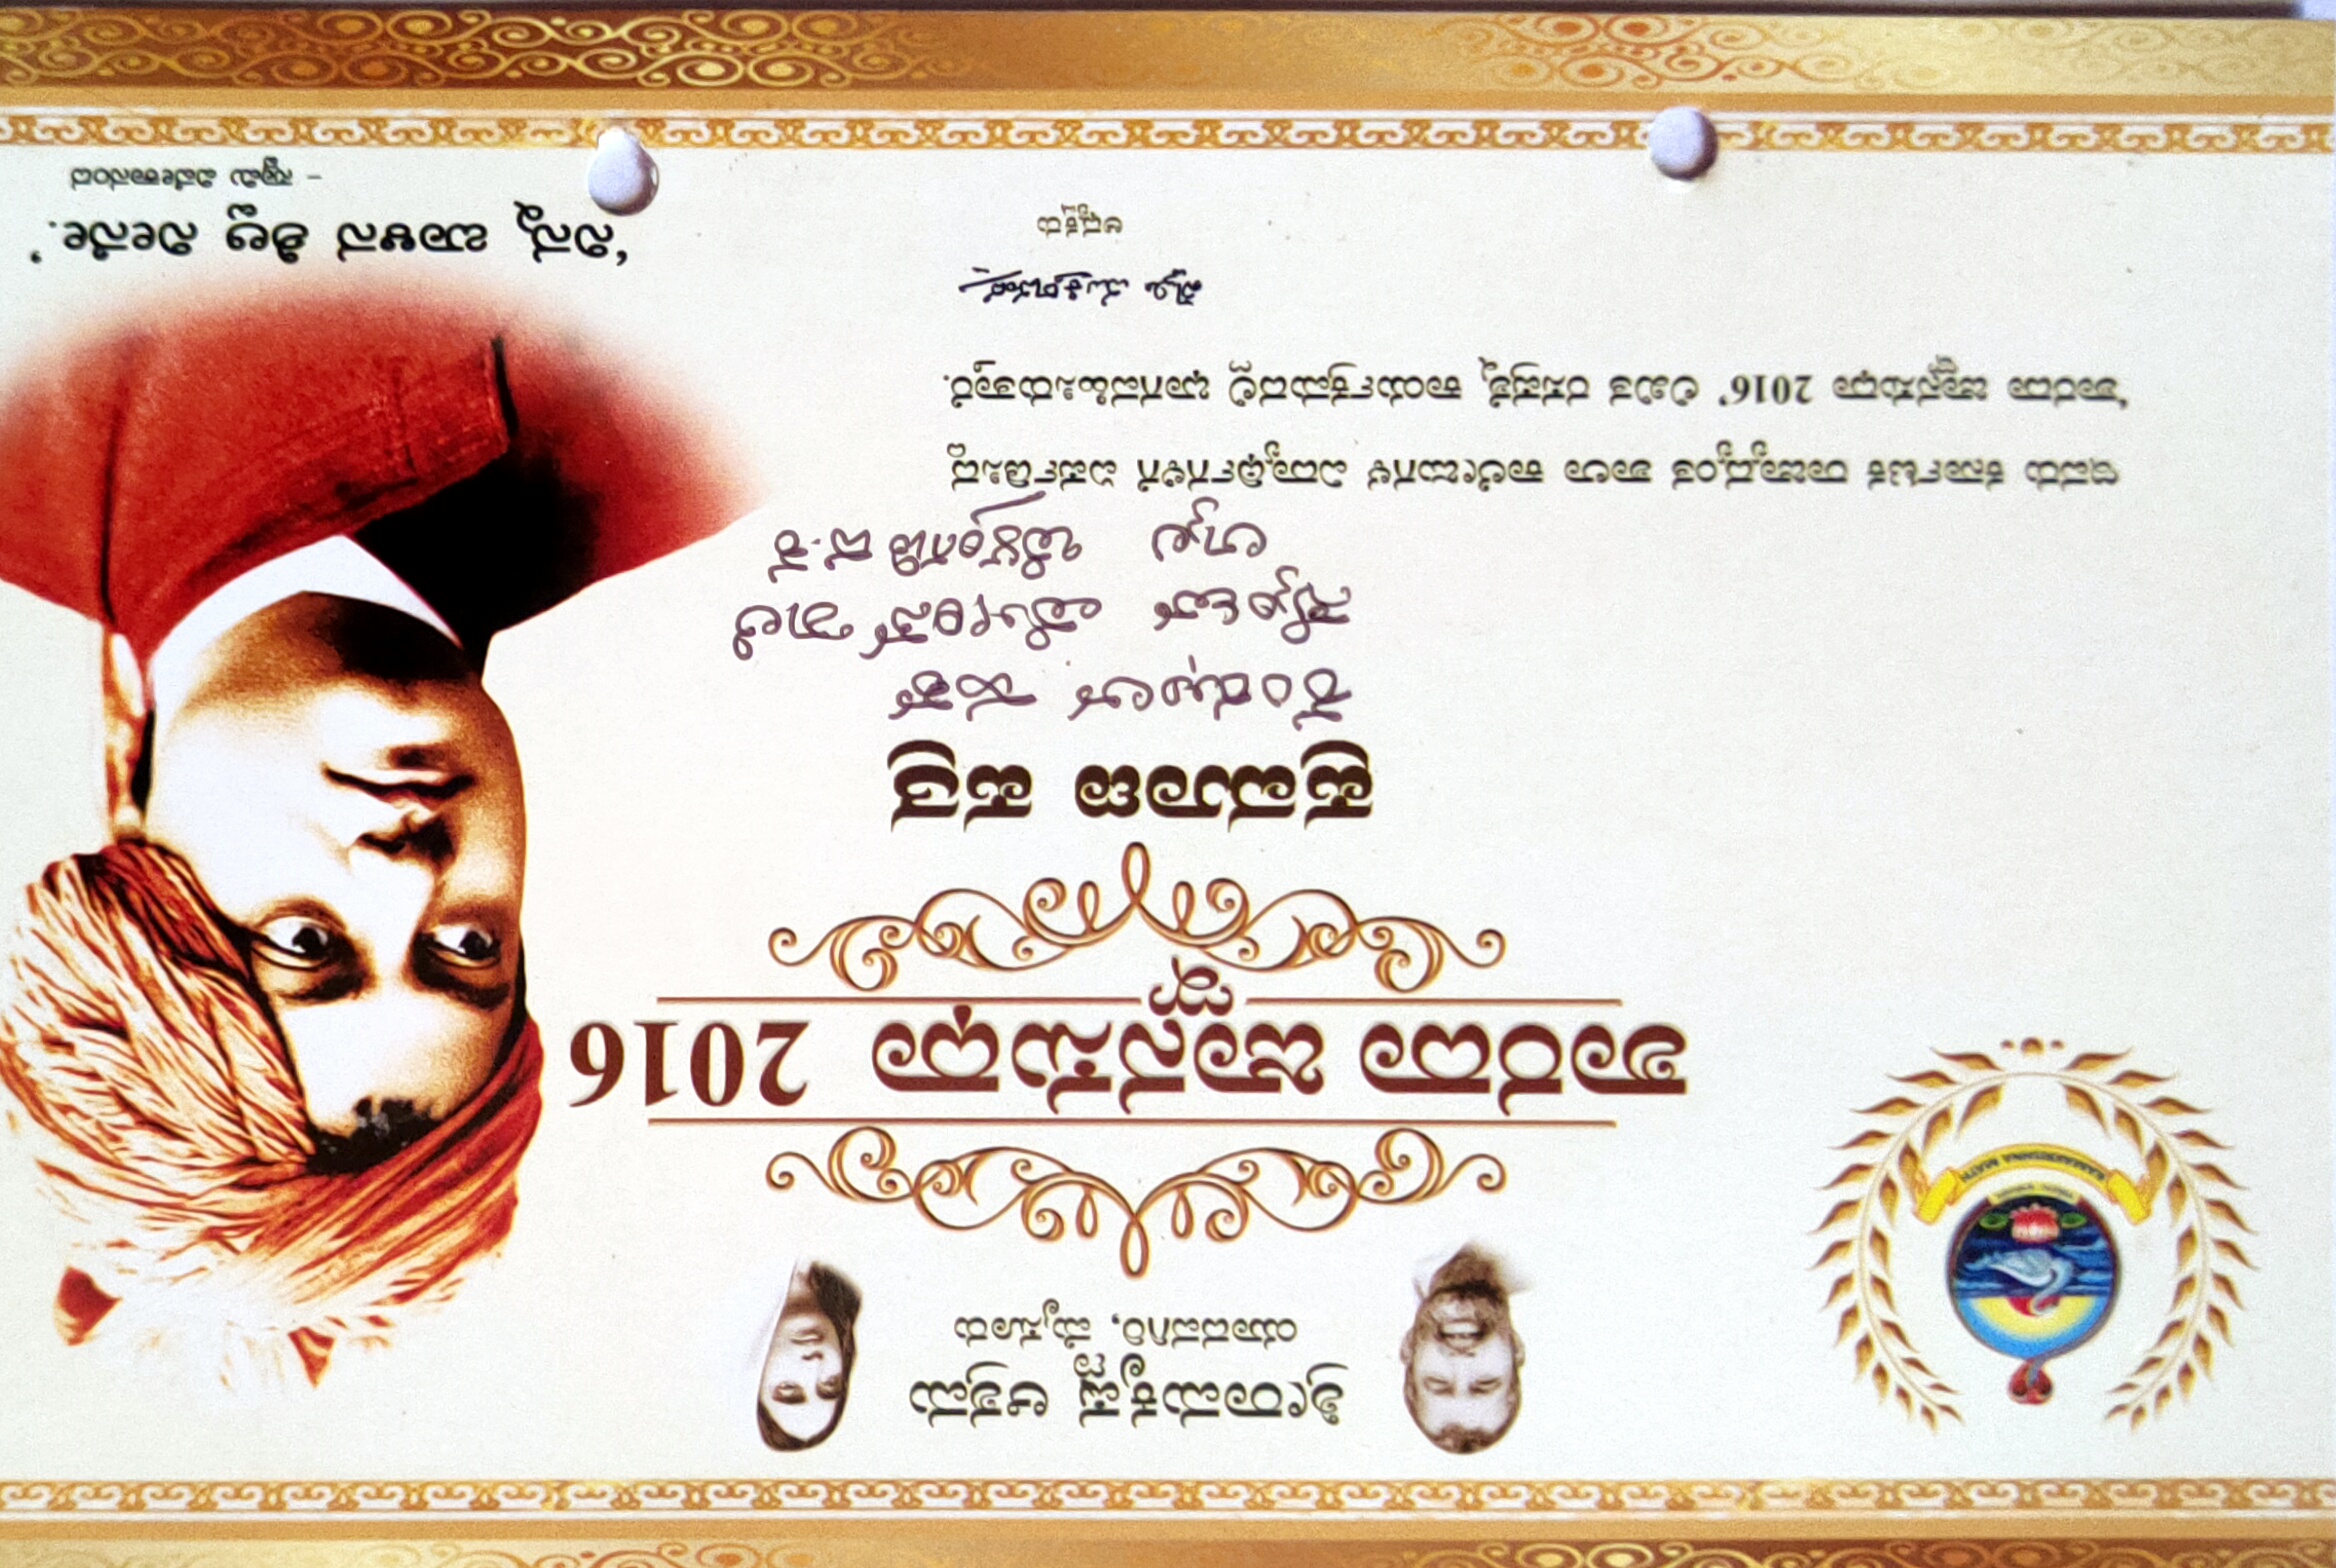 ಶ್ರೀರಾಮಕೃಷ್ಣ ಆಶ್ರಮ
ಯಾದವಗಿರಿ, ಮೈಸೂರು
RAMAKRISHNA MATH
ಶಾರದಾ ಜ್ಞಾನಸುಧಾ 2016
ಪ್ರಮಾಣ ಪತ್ರ
ಕಂಝುಲ್ ಹಕ್
ಸ್ಯೆಂಟ್ ಮೇರಿಸ್ ಶಾಲೆ
ಲ್ಯಾಲ ಬೆಳ್ತಂಗಡಿ ದ.ಕ
ಇವರು ಕರ್ನಾಟಕ ರಾಜ್ಯಾದ್ಯಂತ ಶಾಲಾ ಕಾಲೇಜುಗಳ ವಿದ್ಯಾರ್ಥಿಗಳಿಗೆ ಏರ್ಪಡಿಸಿದ್ದ
‘ಶಾರದಾ ಜ್ಞಾನಸುಧಾ 2016’ ಲಿಖಿತ ರಸಪ್ರಶ್ನೆ ಕಾರ್ಯಕ್ರಮದಲ್ಲಿ ಭಾಗವಹಿಸಿರುತ್ತಾರೆ.
ಸ್ವಾಮಿ ಮುಕ್ತಿದಾನಂದ
ಅಧ್ಯಕ್ಷರು
‘ನಿನ್ನ ಬಾಳಿನ ಶಿಲ್ಪಿ ನೀನೇ.’
– ಸ್ವಾಮಿ ವಿವೇಕಾನಂದ